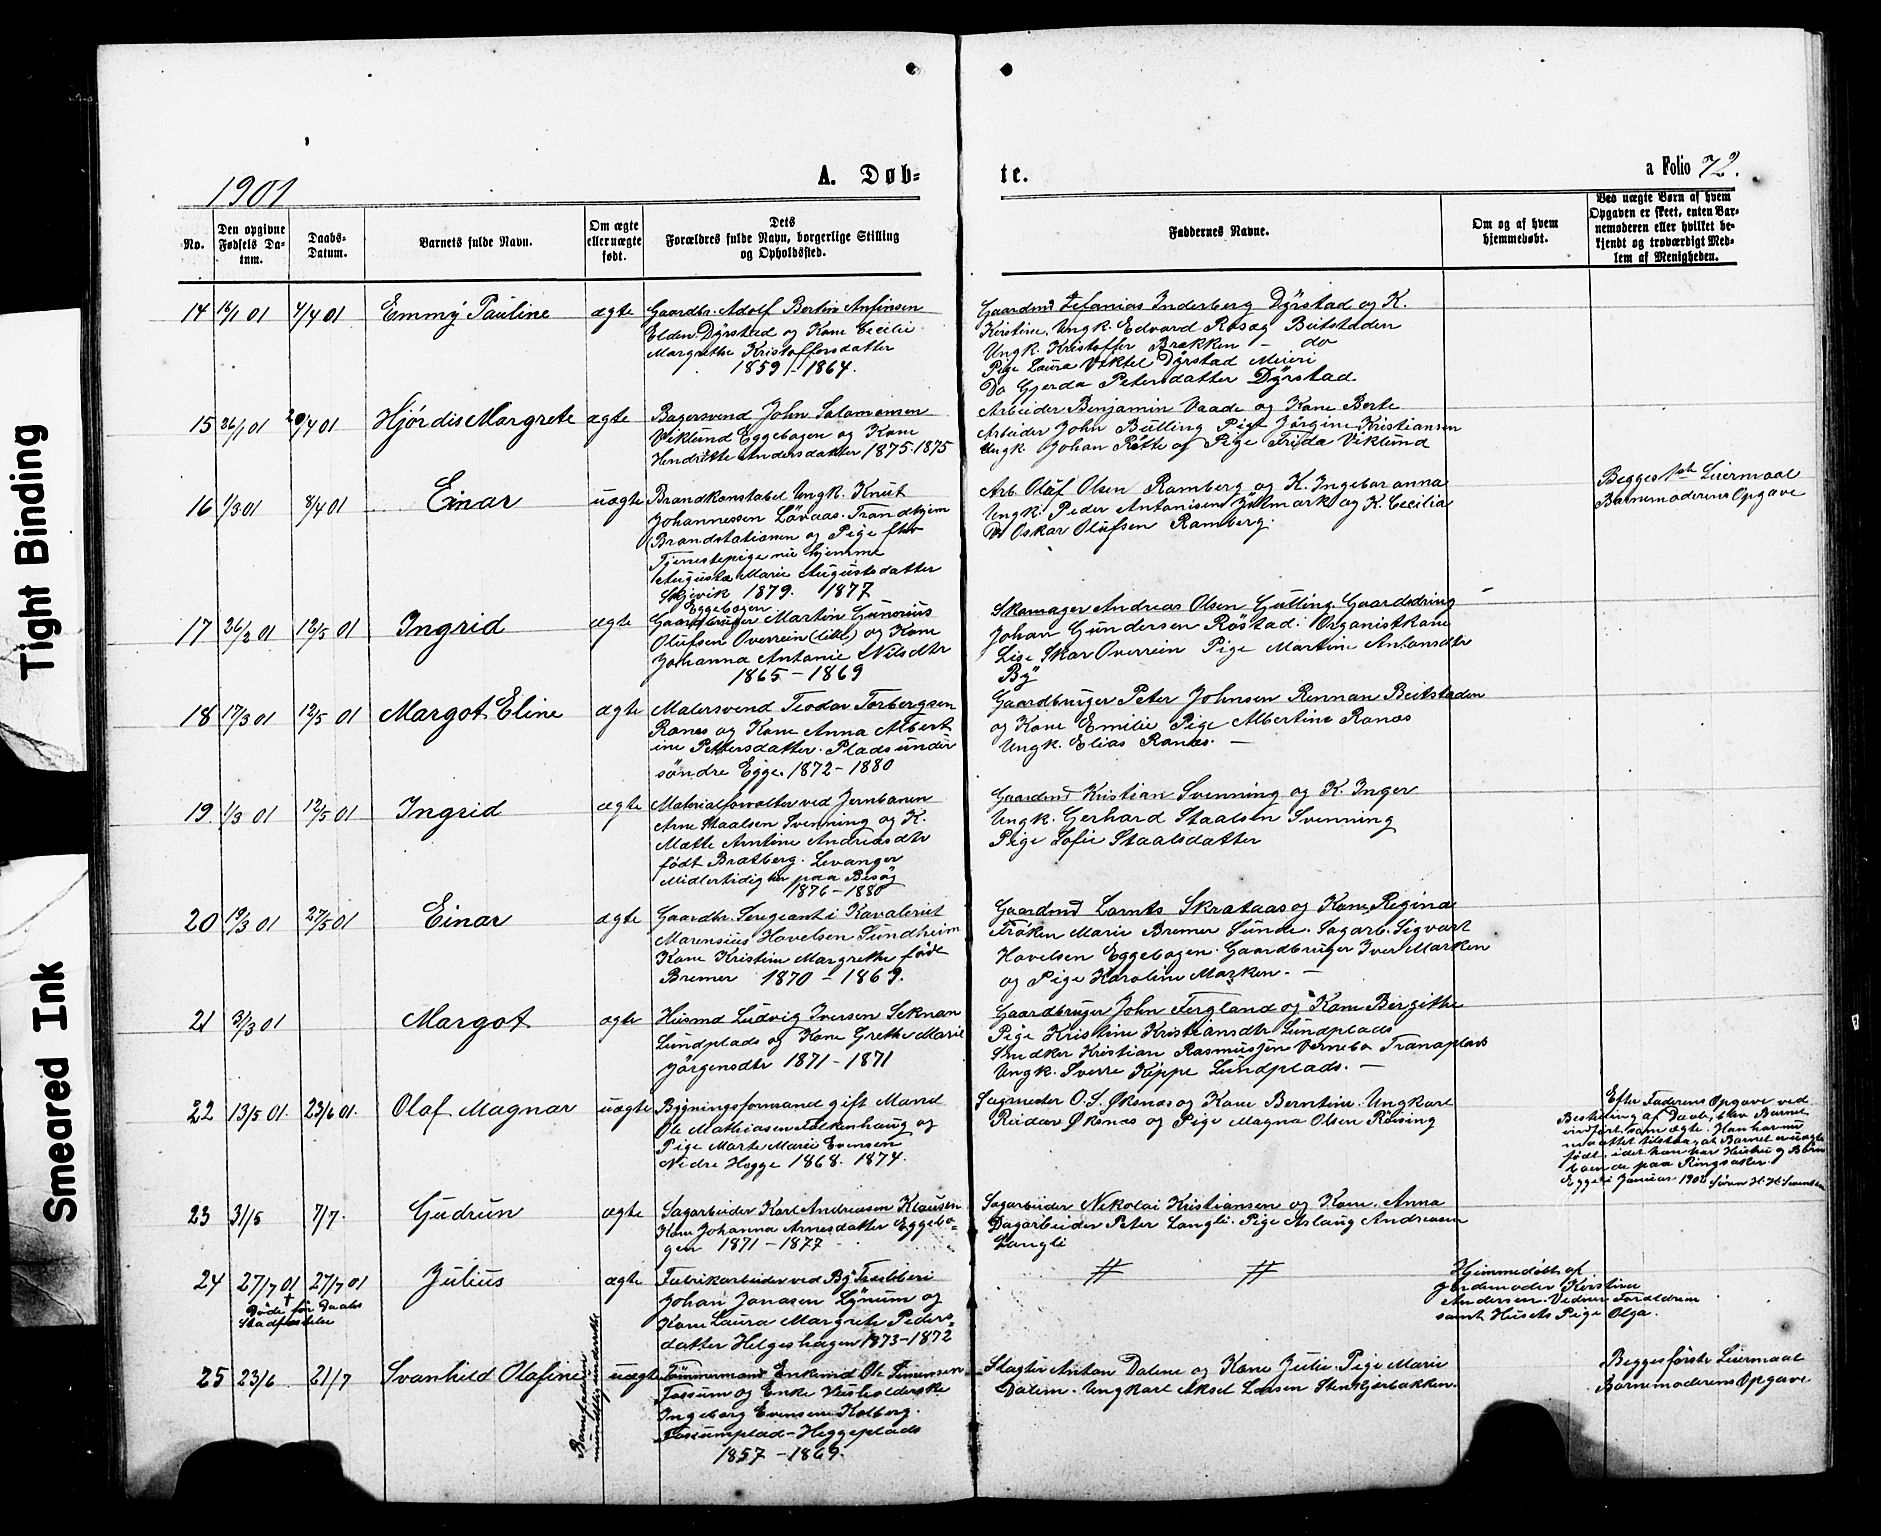 Tight Binding
Smeared Ink
1901
A. Døb-
te.
a Folio 72.
No.
Den opgivne
Fødsels Da-
tum.
Daabs-
Datum.
Barnets fulde Navn.
Om ægte
eller uægte
født.
Dets
Forældres fulde Navn, borgerlige Stilling
og Opholdssted.
Faddernes Navne.
Om og af hvem
hjemmedøbt.
Ved uægte Børn af hvem
Opgaven er skeet, enten Bar-
nemoderen eller hvilket be-
kjendt og troværdigt Med-
lem af Menigheden.
14 16/1 01 4/4 01 Emmy Pauline ægte
Gaardbr. Adolf Bertin Anfinsen
Elden Dÿrstad og Kone Cecilie
Margrethe Kristoffersdatter
1859 - 1864.
Gaardmd Zefanias Inderberg Dÿrstad og K.
Kirstine. Ungk. Edvard Rosæg Beitstaden
Ungk. Kristoffer Brækken - do
Pige Laura Vektel Dÿrstad Meieri
Do Gjerda Petersdatter Dÿrstad.
15 26/1 01 20/4 01 Hjørdis Margrete ægte
Bagersvend John Salamonsen
Viklund Eggebogen og Kone
Hendritte Andersdatter 1875-1875
Arbeider Benjamin Vaade og Kone Berte
Arbeider John Bülling Pige Jørgine Kristiansen
Ungk. Johan Røtte og Pige Frida Viklund
16 1/3 01 8/4 01 Einar uægte
Brandkonstabel Ungk. Knut
Johannessen Løvaas. Trondhjem
Brandstationen og Pige fhv
Tjenestepige nu hjemme
Augusta Marie Augustsdatter
Skjevik 1879. 1877
Arb. Olaf Olsen Ramberg og K. Ingebor anna
Ungk. Peder Antonisen Hjelmark og K. Cecilia
Do Oskar Olufsen Ramberg.
Begges 1ste Leiermaal
Barnemoderens Opgave
17 26/2 01 12/5 01 Ingrid ægte
Eggebogen
Gaardbruger Martin Gunerius
Olufsen Overrein (lille) og Kone
Johanna Antonie Nilsdtr
1865 - 1869
Skomager Andreas Olsen Gulling. Gaardsdreng
Johan Gundersen Røstad. Organistkone
Lise Skar Overrein Pige Martine Antonsdtr
Bÿ
18 17/3 01 12/5 01 Margot Eline ægte
Malersvend Teodor Torbergsen
Ranes og Kone Anna Albert
ine Pettersdatter. Plads under
söndre Egge. 1872 - 1880
Gaardbruger Peter Johnsen Rennan Beitstaden
og Kone Emilie Pige Albertine Ranes
Ungk. Elias Ranes. -
19 1/3 01 12/5 01 Ingrid ægte
Materialforvalter ved Jernbanen
Arne Staalsen Svenning og K.
Mætte Arntine Andreasdtr
født Bratberg. Levanger
Midlertidig her paa Besøg
1876 - 1880
Gaardmd Kristian Svenning og K. Inger
Ungk. Gerhard Staalsen Svenning
Pige Sofie Staalsdatter
20 19/3 01 27/5 01 Einar ægte
Gaardbr. Sergeant i Kavaleriet
Marensius Hovelsen Sundheim
Kone Kristine Margrethe født
Bremer 1870 - 1869.
Gaardmd Lornts Skrataas og Kone Regine
Frøken Marie Bremer Sunde. Sagarb. Sigvart
Hovelsen Eggebogen. Gaardbruger Iver Marken
og Pige Karoline Marken. -
21 31/3 01 Margot ægte
Husmd Ludvig Iversen Seknan
Lundplads og Kone Grethe Marie
Jörgensdtr 1871 - 1871
Gaardbruger John Fergland og Kone Bergithe
Pige Kristine Kristiansdtr Lundplads
Snedker Kristian Rasmussen Vernebo Tranaplads
Ungk. Sverre Kippe Lundplads. -
22 13/5 01. 23/6 01. Olaf Magnar uægte
Bygningsformand gift Mand
Ole Mathiasen Falkenhaug og
Pige Marte Marie Evensen
Nedre Hegge 1868. 1874.
Sagmester O. S. Øksnæs og Kone Berntine. Ungkarl
Reidar Øksnæs og Pige Magna Olsen Røising
Efter Faderens Opgave ved
Bestilling af Daab, blev Barnet
indført som ægte. Han har nu
maattet tilstaa, at Barnet er uægte
født, idet han har Hustru og Børn
boende paa Ringsaker.
Egge i Januar 1902
23 31/5 7/7. Gudrun ægte
Sagarbeider Karl Andreasen Klausen
Kone Johanna Arnesdatter Eggebo-
gen 1871 - 1877
Sagarbeider Nikolai Kristiansen og Kone. Anna
Dagarbeider Peter Langli. Pige Aslaug Andreasen
Langli
24 27/7 01 27/7 01 Julius ægte
† Døde før Daabs
Stadfæstelse
Fabrikarbeider ved Bÿ Træsliberi
Johan Jonasen Lÿnum og
Kone Laura Margrete Peders-
datter Helgeshagen 1873-1872
Hjemmedøbt af
Jordemoder Kirstine
Andersen. Vidner Forældrene
samt Husets Pige Olga.
25 23/6 21/7 Svanhild Olafine uægte
Barnefaderen
mundtlig underrettet
Tømmermand Enkemd Ole Simensen
Fossum og Enke Husholderske
Ingeborg Evensen Kolberg.
Fossumplad - Heggeplads
1857 - 1869.
Slagter Anton Dalene og Kone Julie. Pige Marie
Dalen. Ungkarl Aksel Larsen Stenkjærbakken.
Begges første Leiermaal
Barnemoderens Opgave